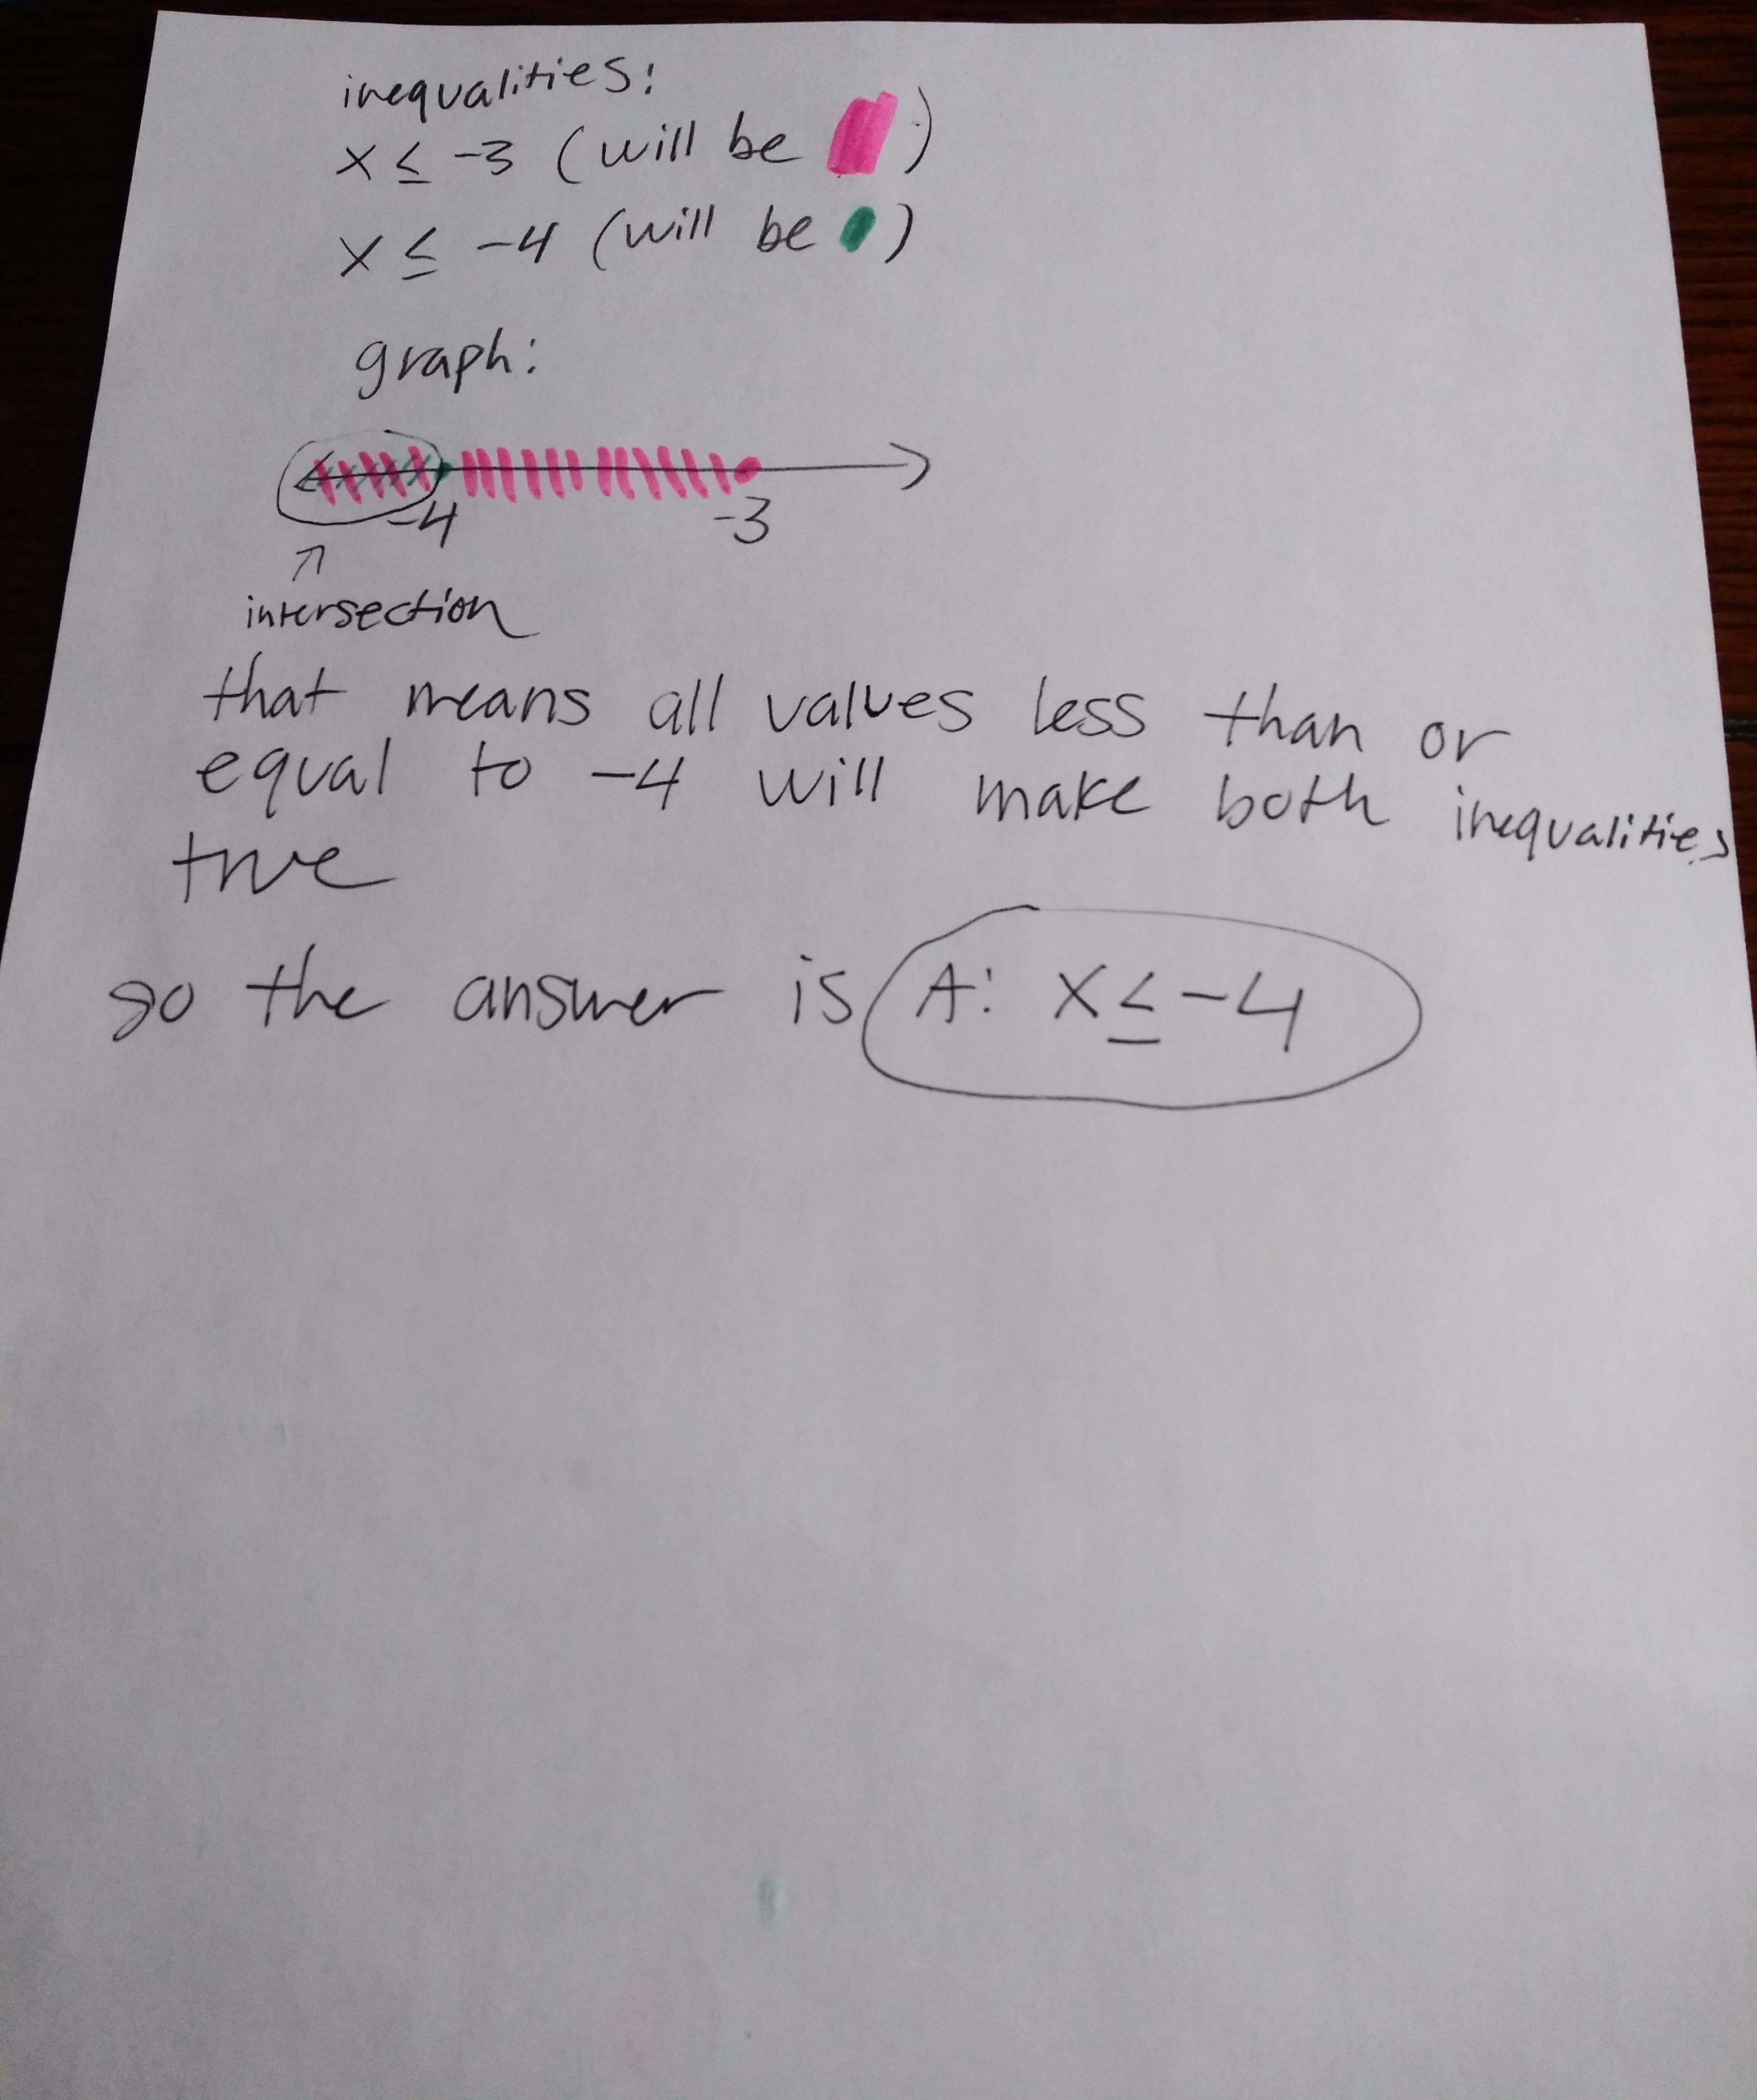 inequalities:
x ≤ -3 (will be )
x ≤ -4 (will be )
graph:
-4 -3
intersection
that means all values less than or
equal to -4 will make both inequalities
true
so the answer is A: x ≤ -4